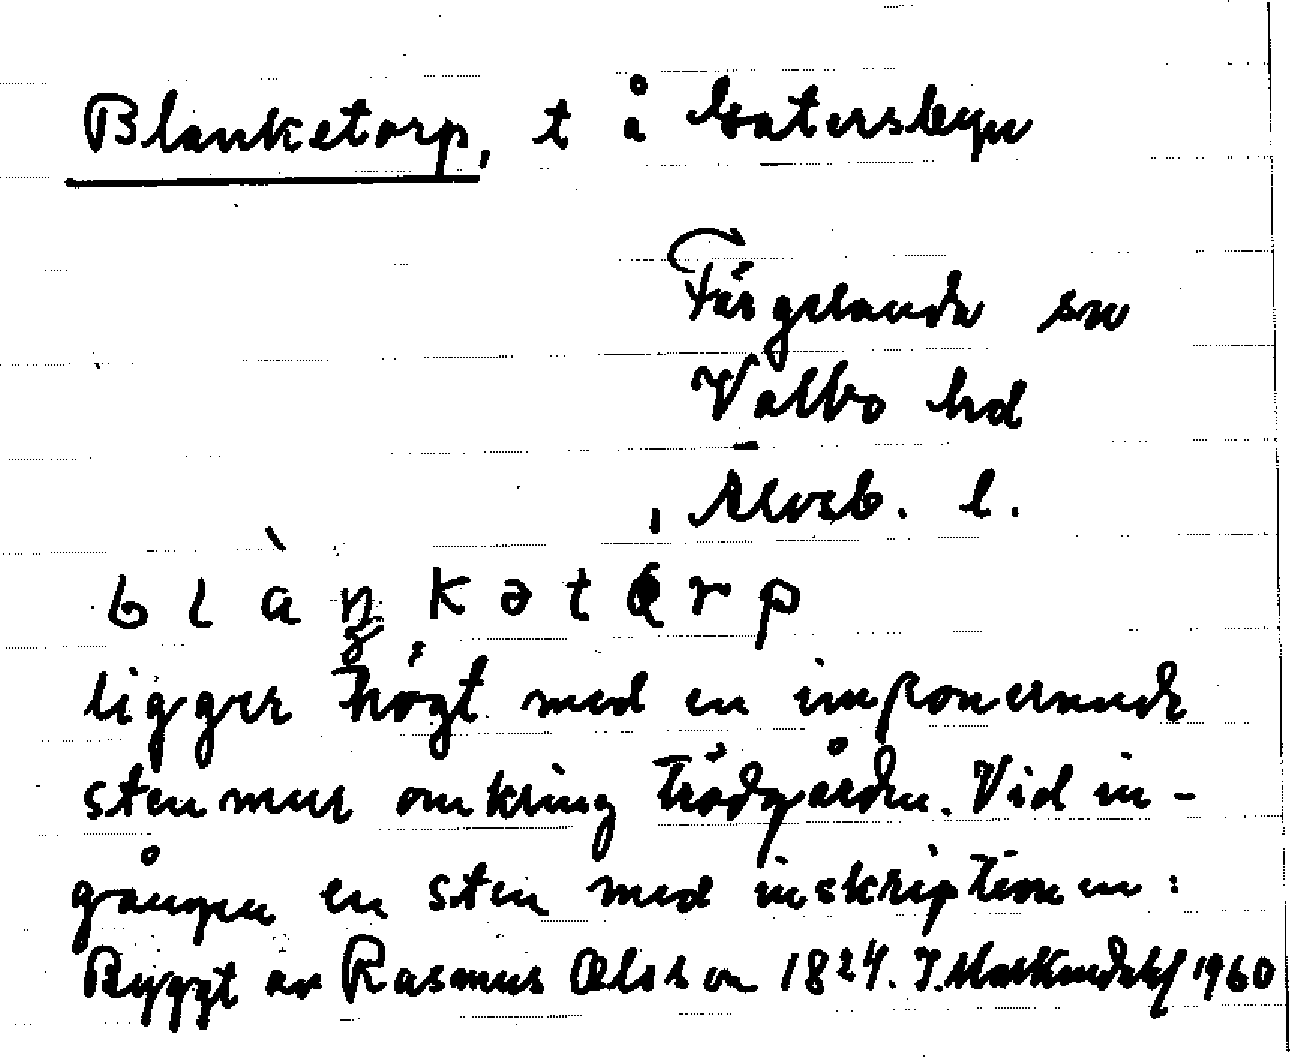 Blanketorp, t å Gatersbyn
Färgelanda sn
Valbo hd
Älvsb. l.
b l à ŋ k ə t ɷ r p
ligger högt med en imponerande
stenmur omkring trädgården. Vid in-
gången en sten med inskriptionen:
Byggt av Rasmus Olsson 1824. 1960